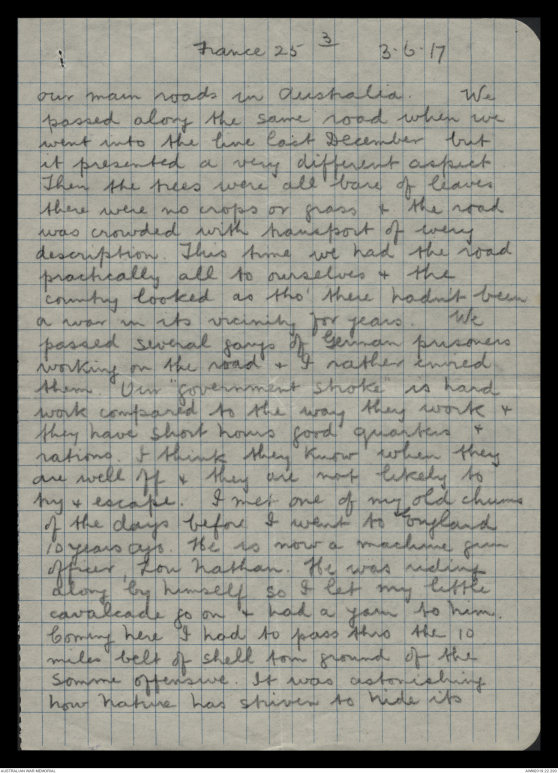 3
France 25 3.6.17
our main roads in Australia. We
passed along the same road when we
went into the line last December but
it presented a very different aspect
Then the trees were all bare of leaves
there were no crops or grass & the road
was crowded with transport of every
description. This time we had the road
practically all to ourselves & the
country looked as tho' there hadn't been
a war in its vicinity for years. We
passed several gangs of German prisoners
working on the road & I rather envied
them. Our "government stroke" is hard
work compared to the way they work &
they have short hours good quarters &
rations. I think they know when they
are well off & they are not likely to
try & escape. I met one of my old chums
of the days before I went to England
10 years ago. He is now a machine gun
officer, Lou Nathan. He was riding
along by himself so I let my little
cavalcade go on & had a yarn to him.
Coming here I had to pass thro the 10
miles belt of shell torn ground of the
Somme offensive. It was astonishing
how nature has striven to hide its
AUSTRALIAN WAR MEMORIAL